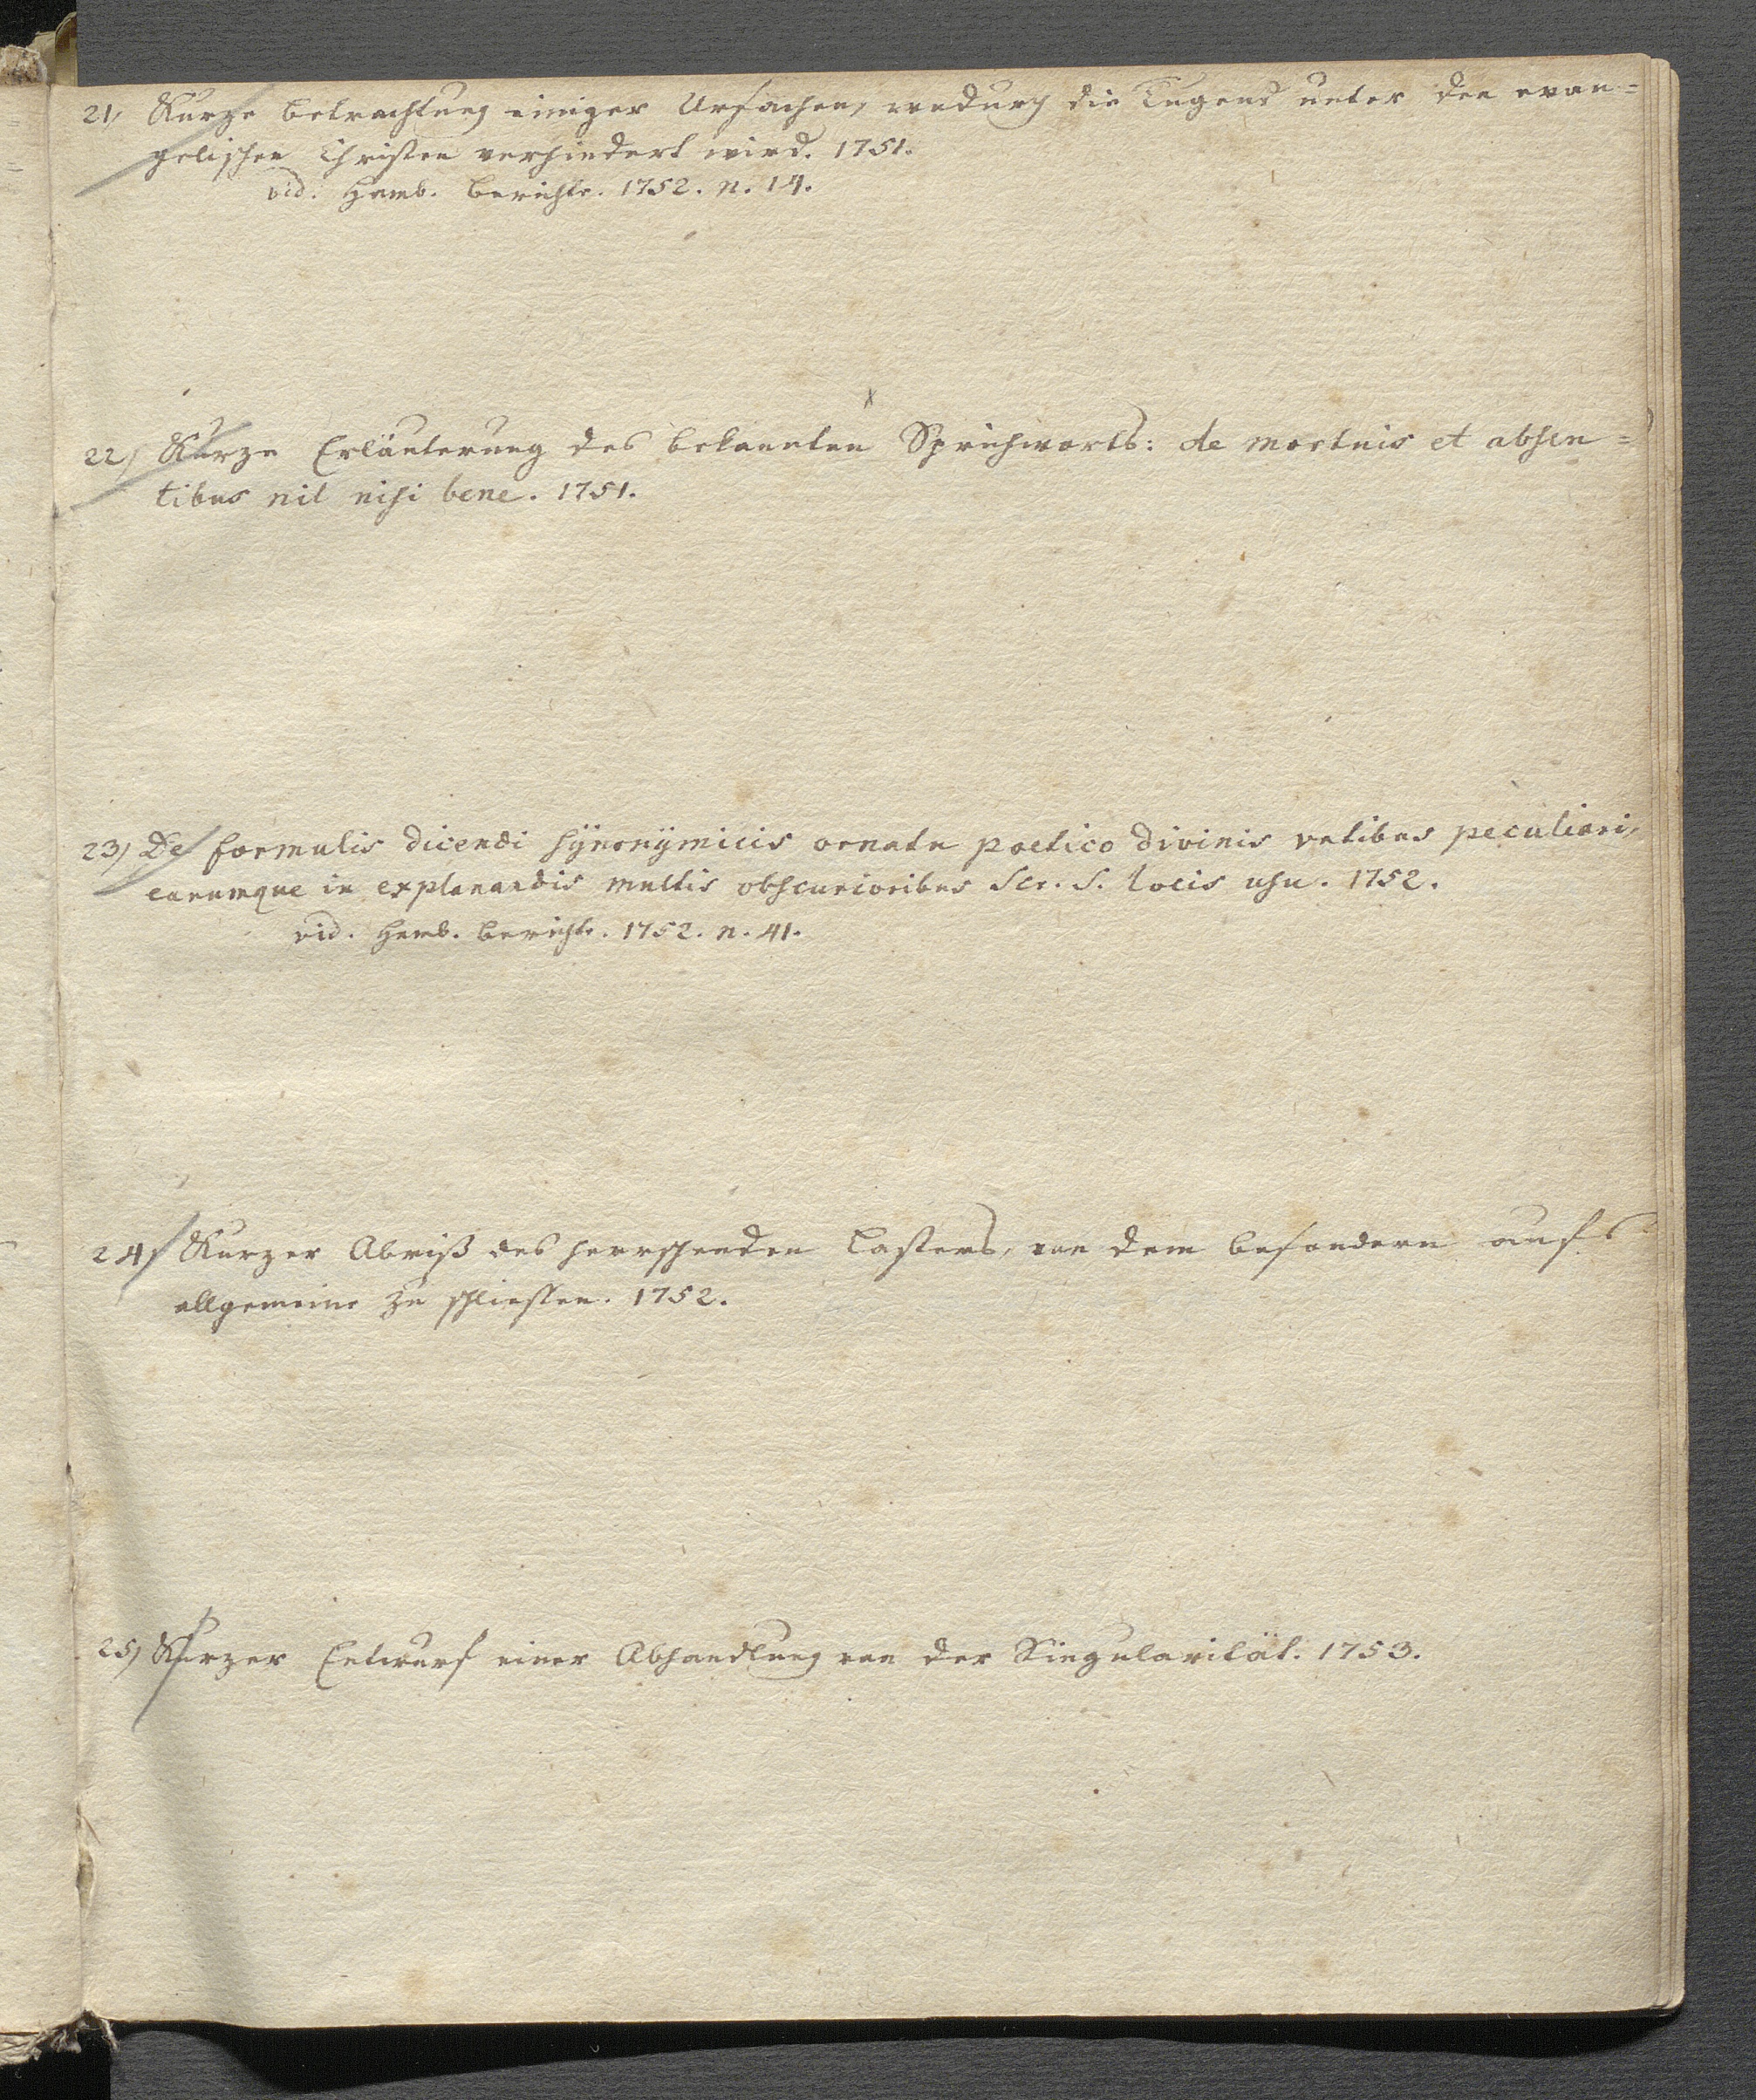 21, Kurze Betrachtung einiger Ursachen, wodurch die Tugend unter den evan=
gelischen Christen verhindert wird. 1751.
vid. Hamb. Berichte. 1752. n. 14.
22) Kurze Erläuterung des bekannten Sprichworts: de mortuis et absen=
tibus nil nisi bene. 1751.
23) De formulis dicendi synonymicis ornatu poetico divinis vatibus peculiari,
earumque in explanandis multis obscurioribus Scr. S. locis usu. 1752.
vid. Hamb. Berichte. 1752. n. 41.
24) Kurzer Abriß des herrschenden Lasters, von dem besondern aufs
allgemeine zu schliessen. 1752.
25) Kurzer Entwurf einer Abhandlung von der Singularität. 1753.